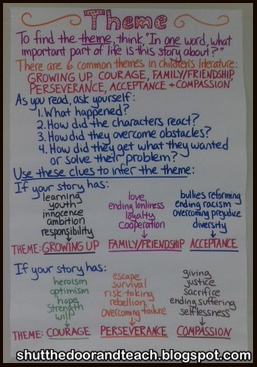 Theme
To find the theme, think, "In one word, what
important part of life is this story about?"
There are 6 common themes in children's literature:
GROWING UP, COURAGE, FAMILY/FRIENDSHIP,
PERSEVERANCE, ACCEPTANCE + COMPASSION
As you read, ask yourself:
1. What happened?
2. How did the characters react?
3. How did they overcome obstacles?
4. How did they get what they wanted
or solve their problem?
Use these clues to infer the theme:
If your story has:
learning love bullies reforming
youth ending lonliness ending racism
innocence loyalty overcoming prejudice
ambition cooperation diversity
responsibility
THEME: GROWING UP FAMILY/FRIENDSHIP ACCEPTANCE
If your story has:
heroism escape giving
optimism survival justice
hope risk-taking sacrifice
strength rebellion ending suffering
will overcoming failure selflessness
THEME: COURAGE PERSEVERANCE COMPASSION
shutthedoorandteach.blogspot.com